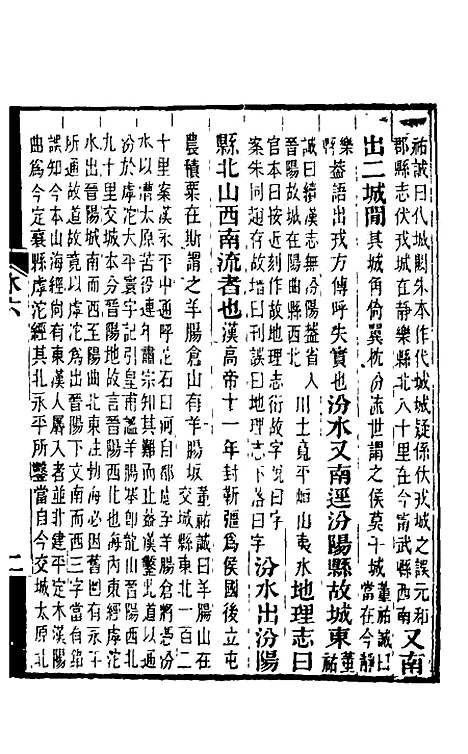 祐誠曰代城賜朱本作代城城疑係伏戎城之誤元和
郡縣志伏戎城在靜樂縣北八十里在今甯武縣西南
又南
出二城間其城角倚翼枕汾流世謂之侯莫干城
董祐誠曰
當在今靜
樂縣
蓋語出戎方傳呼失實也汾水又南逕汾陽縣故城東
董
祐
誠曰續漢志無汾陽蓋省入
晉陽故城在陽曲縣西北
川土寬平峘山夷水地理志曰
官本曰按近刻作故地理志衍故字訛曰字
案朱同趙存故增曰刊誤曰地理志下落曰字
汾水出汾陽
縣北山西南流者也漢高帝十一年封靳彊爲侯國後立屯
農積粟在斯謂之羊腸倉山有羊腸坂
董祐誠曰羊腸山在
交城縣東北一百二
十里案漢永平中通呼沱石臼河自都慮至羊腸倉將憑汾
水以漕太原苦役連年肅宗知其難而止蓋漢鑿此道以通
汾於虖沱太平寰宇記引皇甫謐羊腸塞卽龍山晉陽西北
九十里交城本分晉陽地故言晉陽西北也海內東經虖沱
水出晉陽城南而西至陽曲北東注渤海蓋卽因舊圖有永平
所通故道故竟以虖沱爲出晉陽下文南而西三字當有錯
誤知今本山海經尙有東漢人羼入者並北建平定木漢陽
曲爲今定襄縣虖沱經其北永平所鑿當自今交城太原北
水六
二